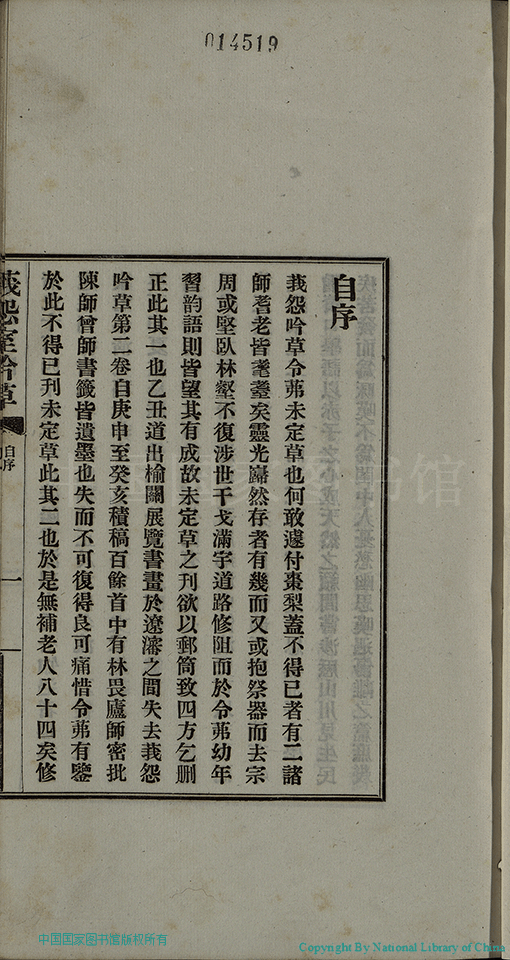 014519
自序
莪怨吟草令茀未定草也何敢遽付棗梨蓋不得已者有二諸
師耆老皆耄耋矣靈光巋然存者有幾而又或抱祭器而去宗
周或堅臥林壑不復涉世干戈滿宇道路修阻而於令茀幼年
習韵語則皆望其有成故未定草之刊欲以郵筒致四方乞刪
正此其一也乙丑道出榆關展覽書畫於遼瀋之間失去莪怨
吟草第二卷自庚申至癸亥積稿百餘首中有林畏廬師密批
陳師曾師書籤皆遺墨也失而不可復得良可痛惜令茀有鑒
於此不得已刊未定草此其二也於是無補老人八十四矣修
莪怨室吟草
自序
一
中国国家图书馆版权所有
Copyright By National Library of China